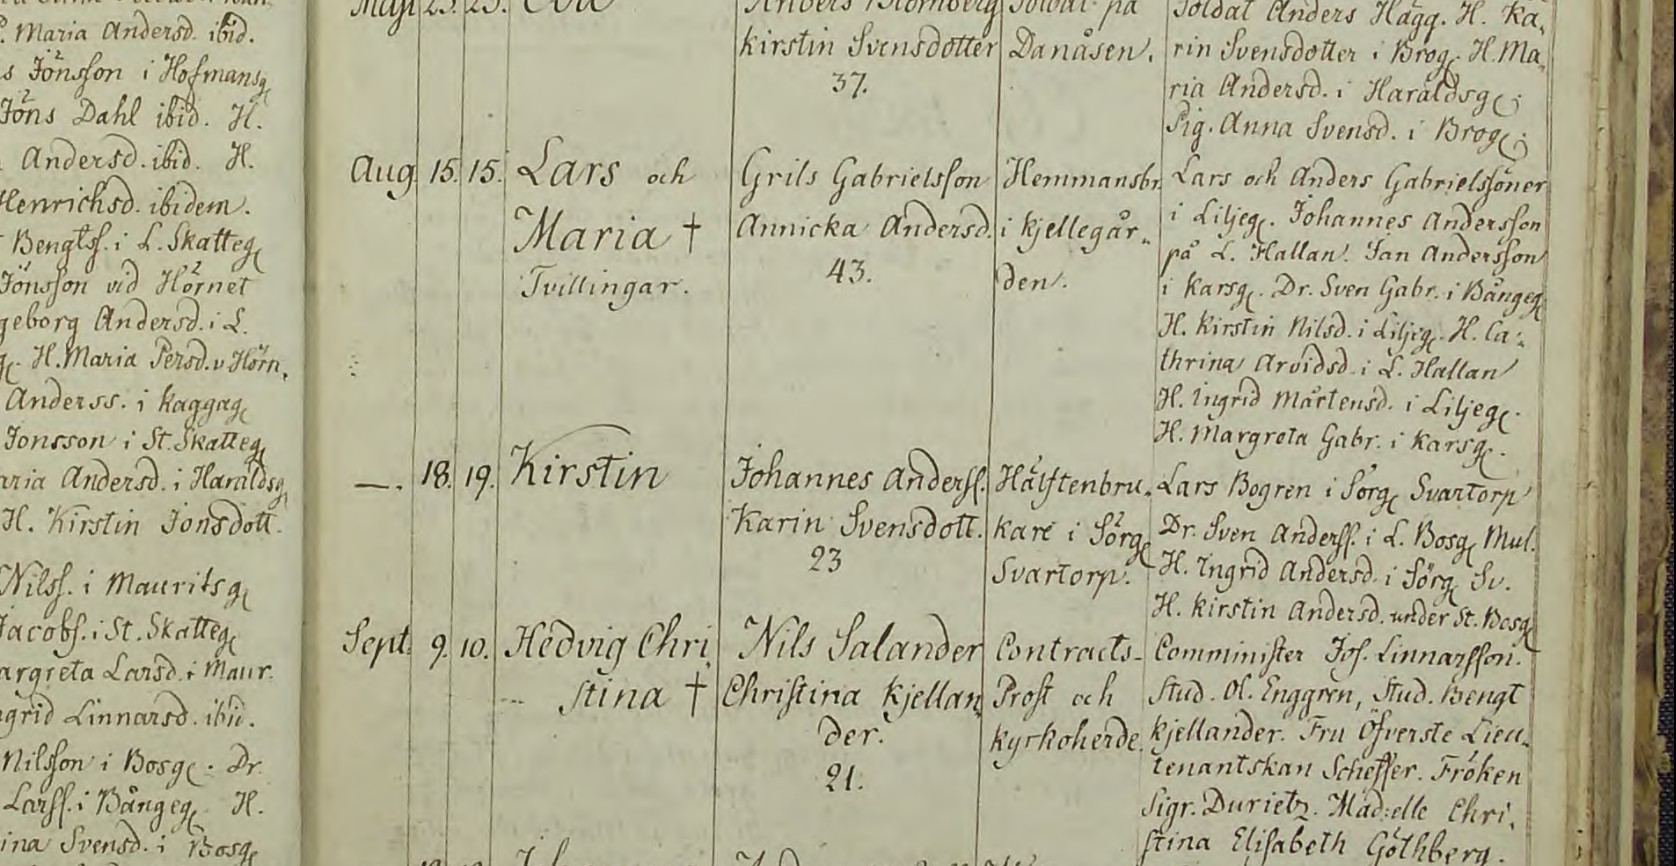 P. Maria Andersd. ibid.
s Jönsson i Hofmansg
Jöns Dahl ibid. H.
Andersd. ibid. H.
Henrichsd. ibidem.
Bengtss. i L. Skatteg
Jönsson vid Hörnet
geborg Andersd. i L.
g. H. Maria Persd. v Hörn.
Anderss. i Kaggag
Jonsson i St. Skatteg
aria Andersd. i Haraldsg
H. Kirstin Jonsdott.
Nilss. i Mauritsg
Jacobs. i St. Skatteg
argreta Larsd. i Maur.
ngrid Linnarsd. ibid.
Nilsson i Bosg. Dr.
Larss. i Bångeg. H.
ina Svensd. i Bosg
Maji 25. 25.
Anders Blomberg
Kirstin Svensdotter
37.
Soldat på
Danåsen.
Soldat Anders Hägg. H. Ka-
rin Svensdotter i Brog. H. Ma-
ria Andersd. i Haraldsg.
Pig. Anna Svensd. i Brog.
Aug. 15. 15. Lars och
Maria †
Tvillingar.
Grils Gabrielsson
Annicka Andersd.
43.
Hemmansbr.
i Kjellegår-
den.
Lars och Anders Gabrielssöner
i Liljeg. Johannes Andersson
på L. Hallan. Jan Andersson
i Karsg. Dr. Sven Gabr. i Bångeg
H. Kirstin Nilsd. i Liljeg. H. Ca-
thrina Arvidsd. i L. Hallan
H. Ingrid Mårtensd. i Liljeg.
H. Margreta Gabr. i Karsg.
—. 18. 19. Kirstin
Johannes Anderss.
Karin Svensdott.
23
Hälftenbru-
kare i Sörg
Svartorp.
Lars Bogren i Sörg Svartorp
Dr. Sven Anderss. i L. Bosg Mul.
H. Ingrid Andersd. i Sörg Sv.
H. Kirstin Andersd. under St. Bosg
Sept. 9. 10. Hedvig Chri-
stina †
Nils Salander
Christina Kjellan-
der.
21.
Contracts-
Prost och
Kyrkoherde.
Comminister Jos. Linnarsson.
Stud. Ol. Enggren, Stud. Bengt
Kjellander. Fru Öfverste Lieu-
tenantskan Scheffer. Fröken
Sigr. Durietz. Mad:elle Chri-
stina Elisabeth Göthberg.